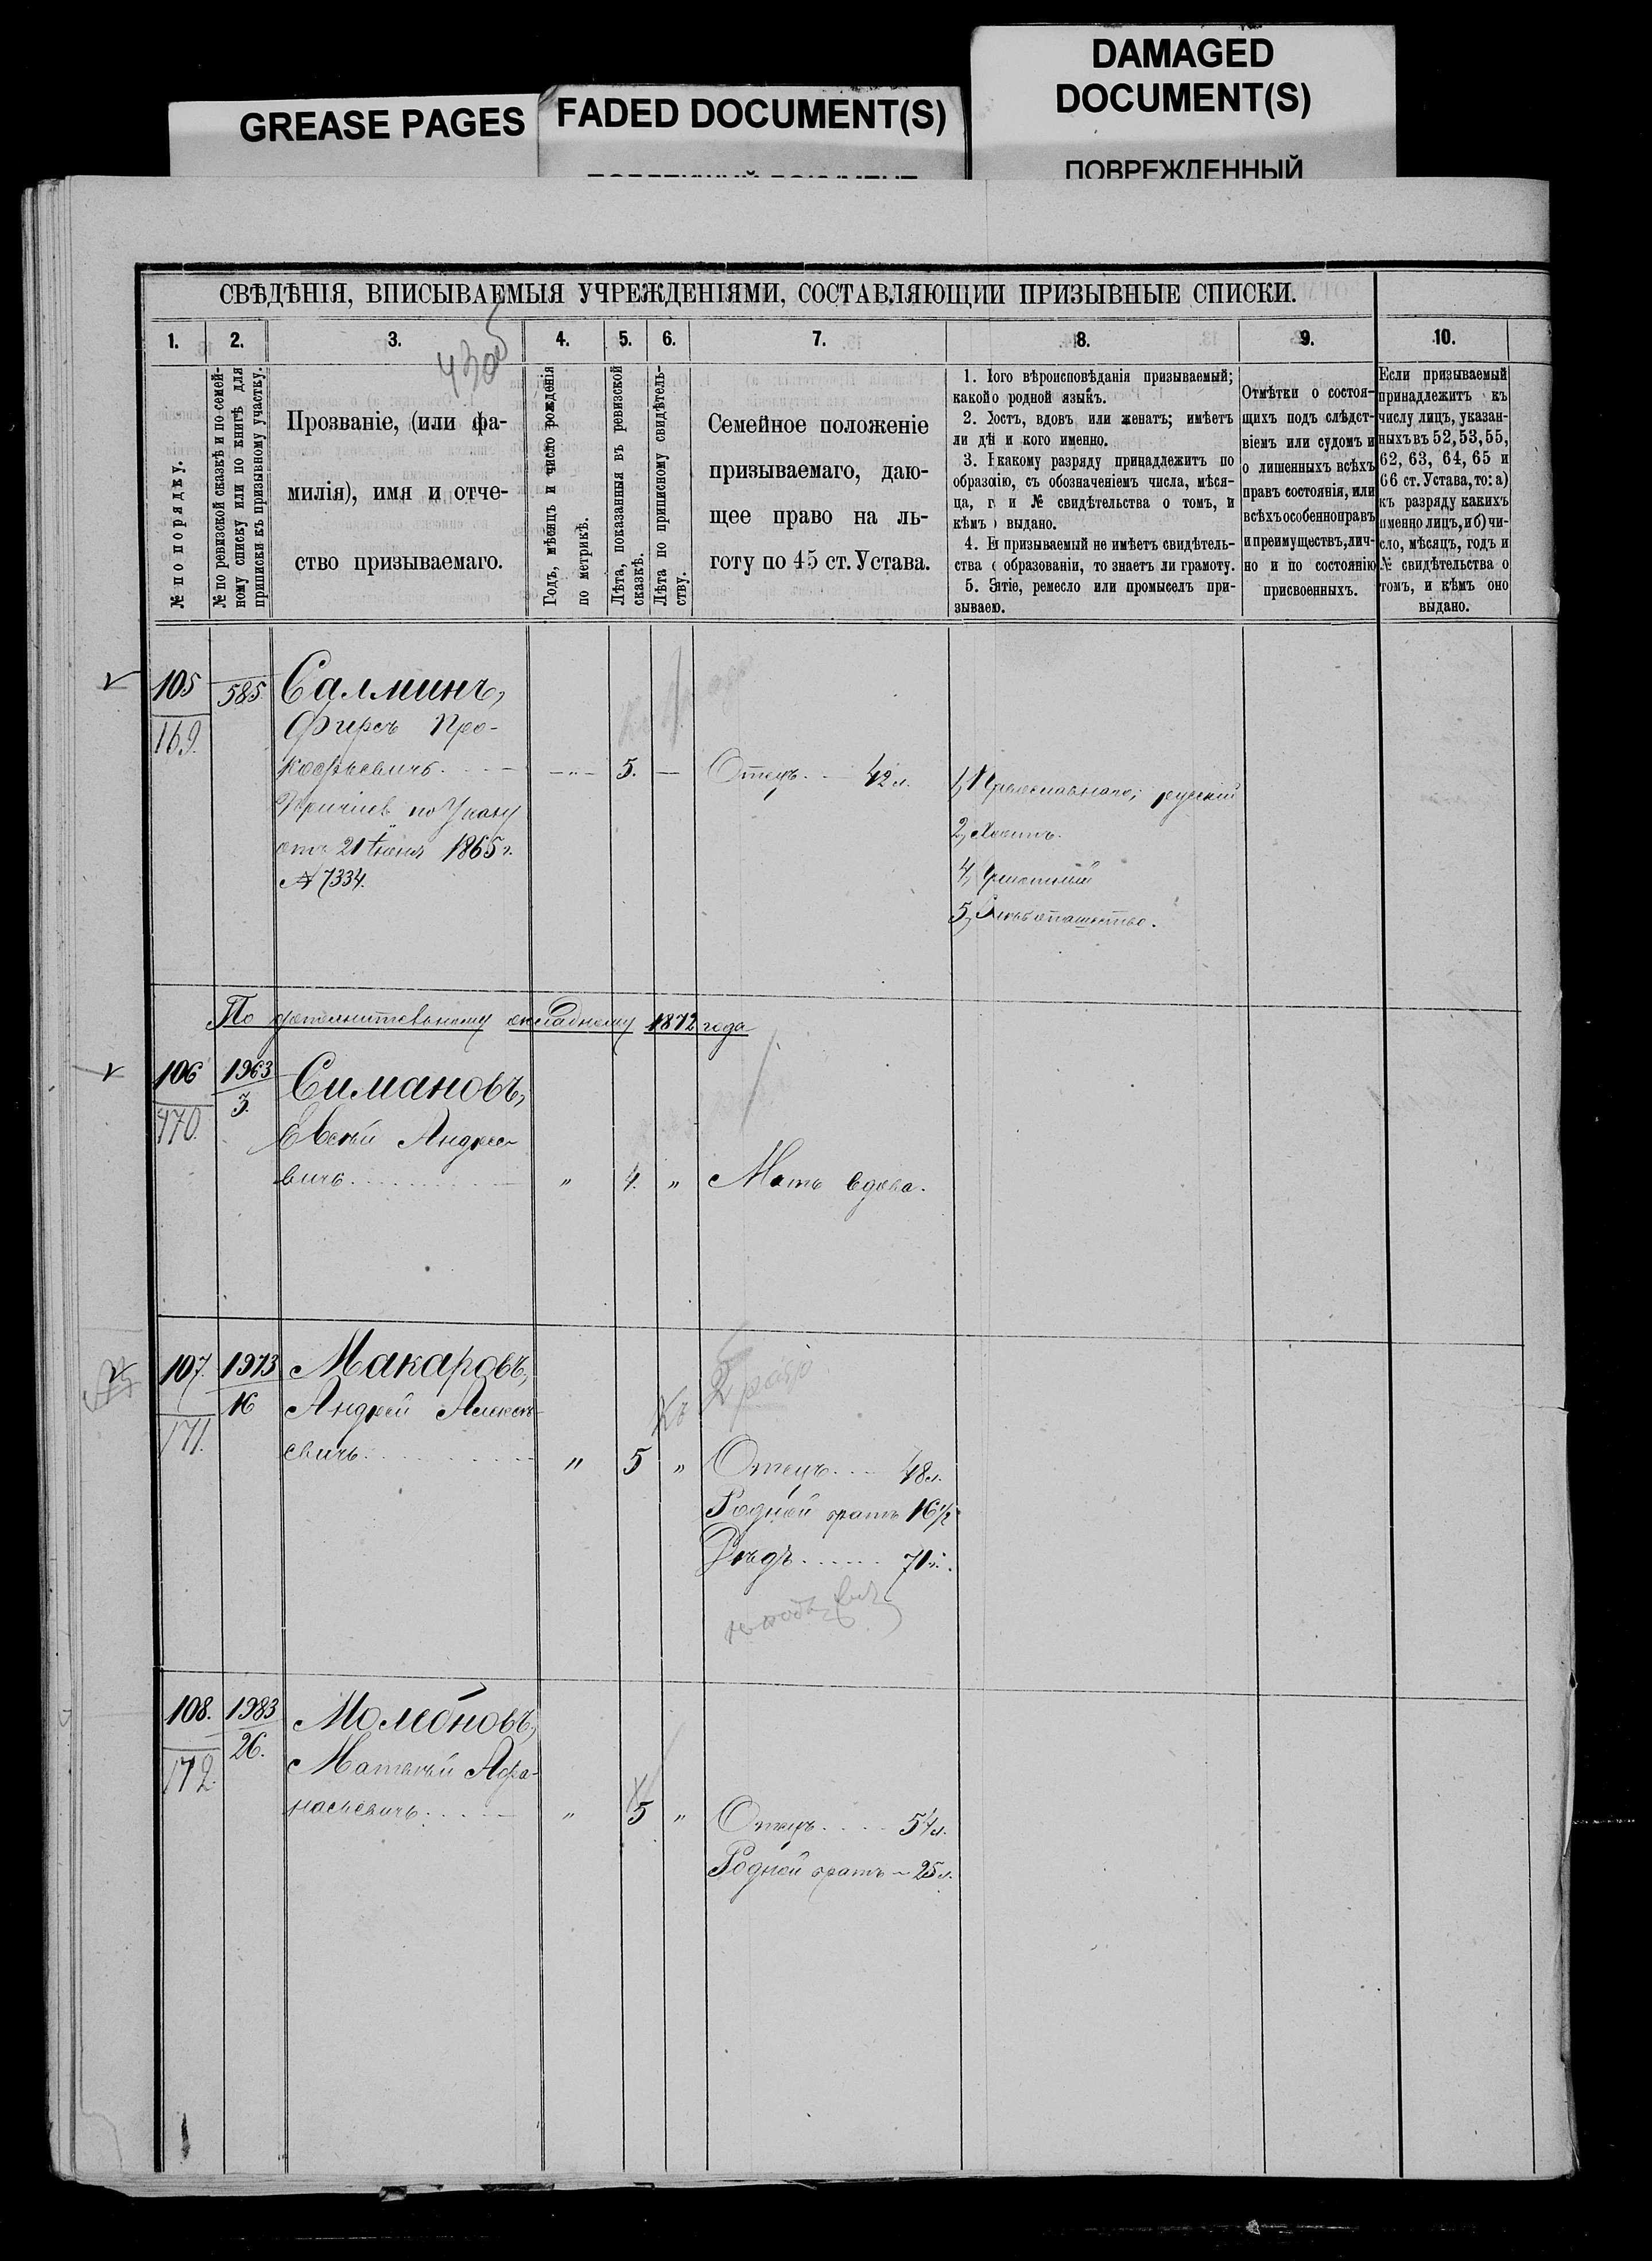 GREASE PAGES
FADED DOCUMENT(S)
DAMAGED
DOCUMENT(S)
ПОВРЕЖДЕННЫЙ
СВѢДѢНІЯ, ВПИСЫВАЕМЫЯ УЧРЕЖДЕНІЯМИ, СОСТАВЛЯЮЩИИ ПРИЗЫВНЫЕ СПИСКИ.
1. 2. 3. 4. 5. 6. 7. 8. 9. 10.
№ по порядку.
№ по ревизской сказкѣ и по семей-
ному списку или по книгѣ для
приписки къ призывному участку.
Прозваніе, (или фа-
милія), имя и отче-
ство призываемаго.
Годъ, мѣсяцъ и число рожденія
по метрикѣ.
Лѣта, показанныя въ ревизской
сказкѣ.
Лѣта по приписному свидѣтель-
ству.
Семейное положеніе
призываемаго, даю-
щее право на ль-
готу по 45 ст. Устава.
вѣроисповѣданія призываемый;
родной языкъ.
вдовъ или женатъ; имѣетъ
ли и кого именно.
какому разряду принадлежитъ по
съ обозначеніемъ числа, мѣся-
ца, и № свидѣтельства о томъ, и
кѣмъ выдано.
4. призываемый не имѣетъ свидѣтель-
ства образованіи, то знаетъ ли грамоту.
5. ремесло или промыселъ при-
Отмѣтки о состоя-
щихъ подъ слѣдст-
віемъ или судомъ и
о лишенныхъ всѣхъ
правъ состоянія, или
всѣхъ особенно правъ
и преимуществъ, лич-
но и по состоянію
присвоенныхъ.
Если призываемый
принадлежитъ къ
числу лицъ, указан-
ныхъ въ 52, 53, 55,
62, 63, 64, 65 и
66 ст. Устава, то: а)
къ разряду какихъ
именно лицъ, и б) чи-
сло, мѣсяцъ, годъ и
№ свидѣтельства о
томъ, и кѣмъ оно
выдано.
105 585 Салминъ,
169. Фирсъ Про-
кофьевичъ. 5. Отецъ. 42 л.
по Указу
отъ 21 Іюня 1865 г.
№ 7334.
1, Православнаго; русскій
2, Холостъ.
4,
5, Хлебопашество.
По дополнительному окладному 1872 года
106 1963 Симановъ,
170. 3. Евсѣй Андрее-
вичъ. " 4. " Мать вдова.
107. 1973 Макаровъ,
171. 16 Андрей Алексѣ-
евичъ. " 5 " Отецъ. 48 л.
Родной братъ 16 1/2
Дѣдъ 71 л.
Къ 2 разр
108. 1983 Молебновъ,
172. 26. Матвѣй Афа-
насьевичъ. " 5 " Отецъ. 54 л.
Родной братъ – 25 л.